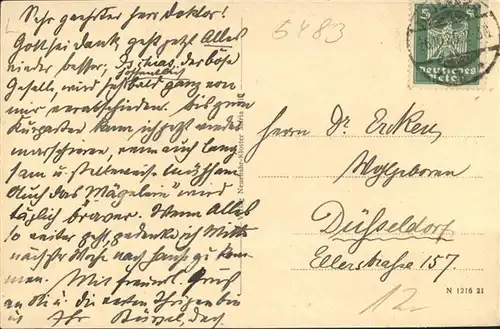 Sehr geehrter Herr Doktor!
Gottsei dank, geht jetzt Alles
wieder besser, Ischias, der böse
Geselle, wird hoffentlich bald ganz von
mir verabschieden. bis zum
Kurgarten kann ich jetzt wieder
marschieren, wenn auch lang
sam u. stellenweise mühsam.
Auch das "Mägelein" wird
täglich braver. Wenn Alles
so weiter geht, gedenke ich Mitte
nächster Woche nach Hause zu kom
men. Mit freundl. Gruß
an Sie u. die werten Ihrigen bin
ich Ihr
5483
Deutsches
Reich
Herrn Dr. Ercken,
Wohlgeboren
Düsseldorf
Ellerstraße 157.
N 1216 21
12